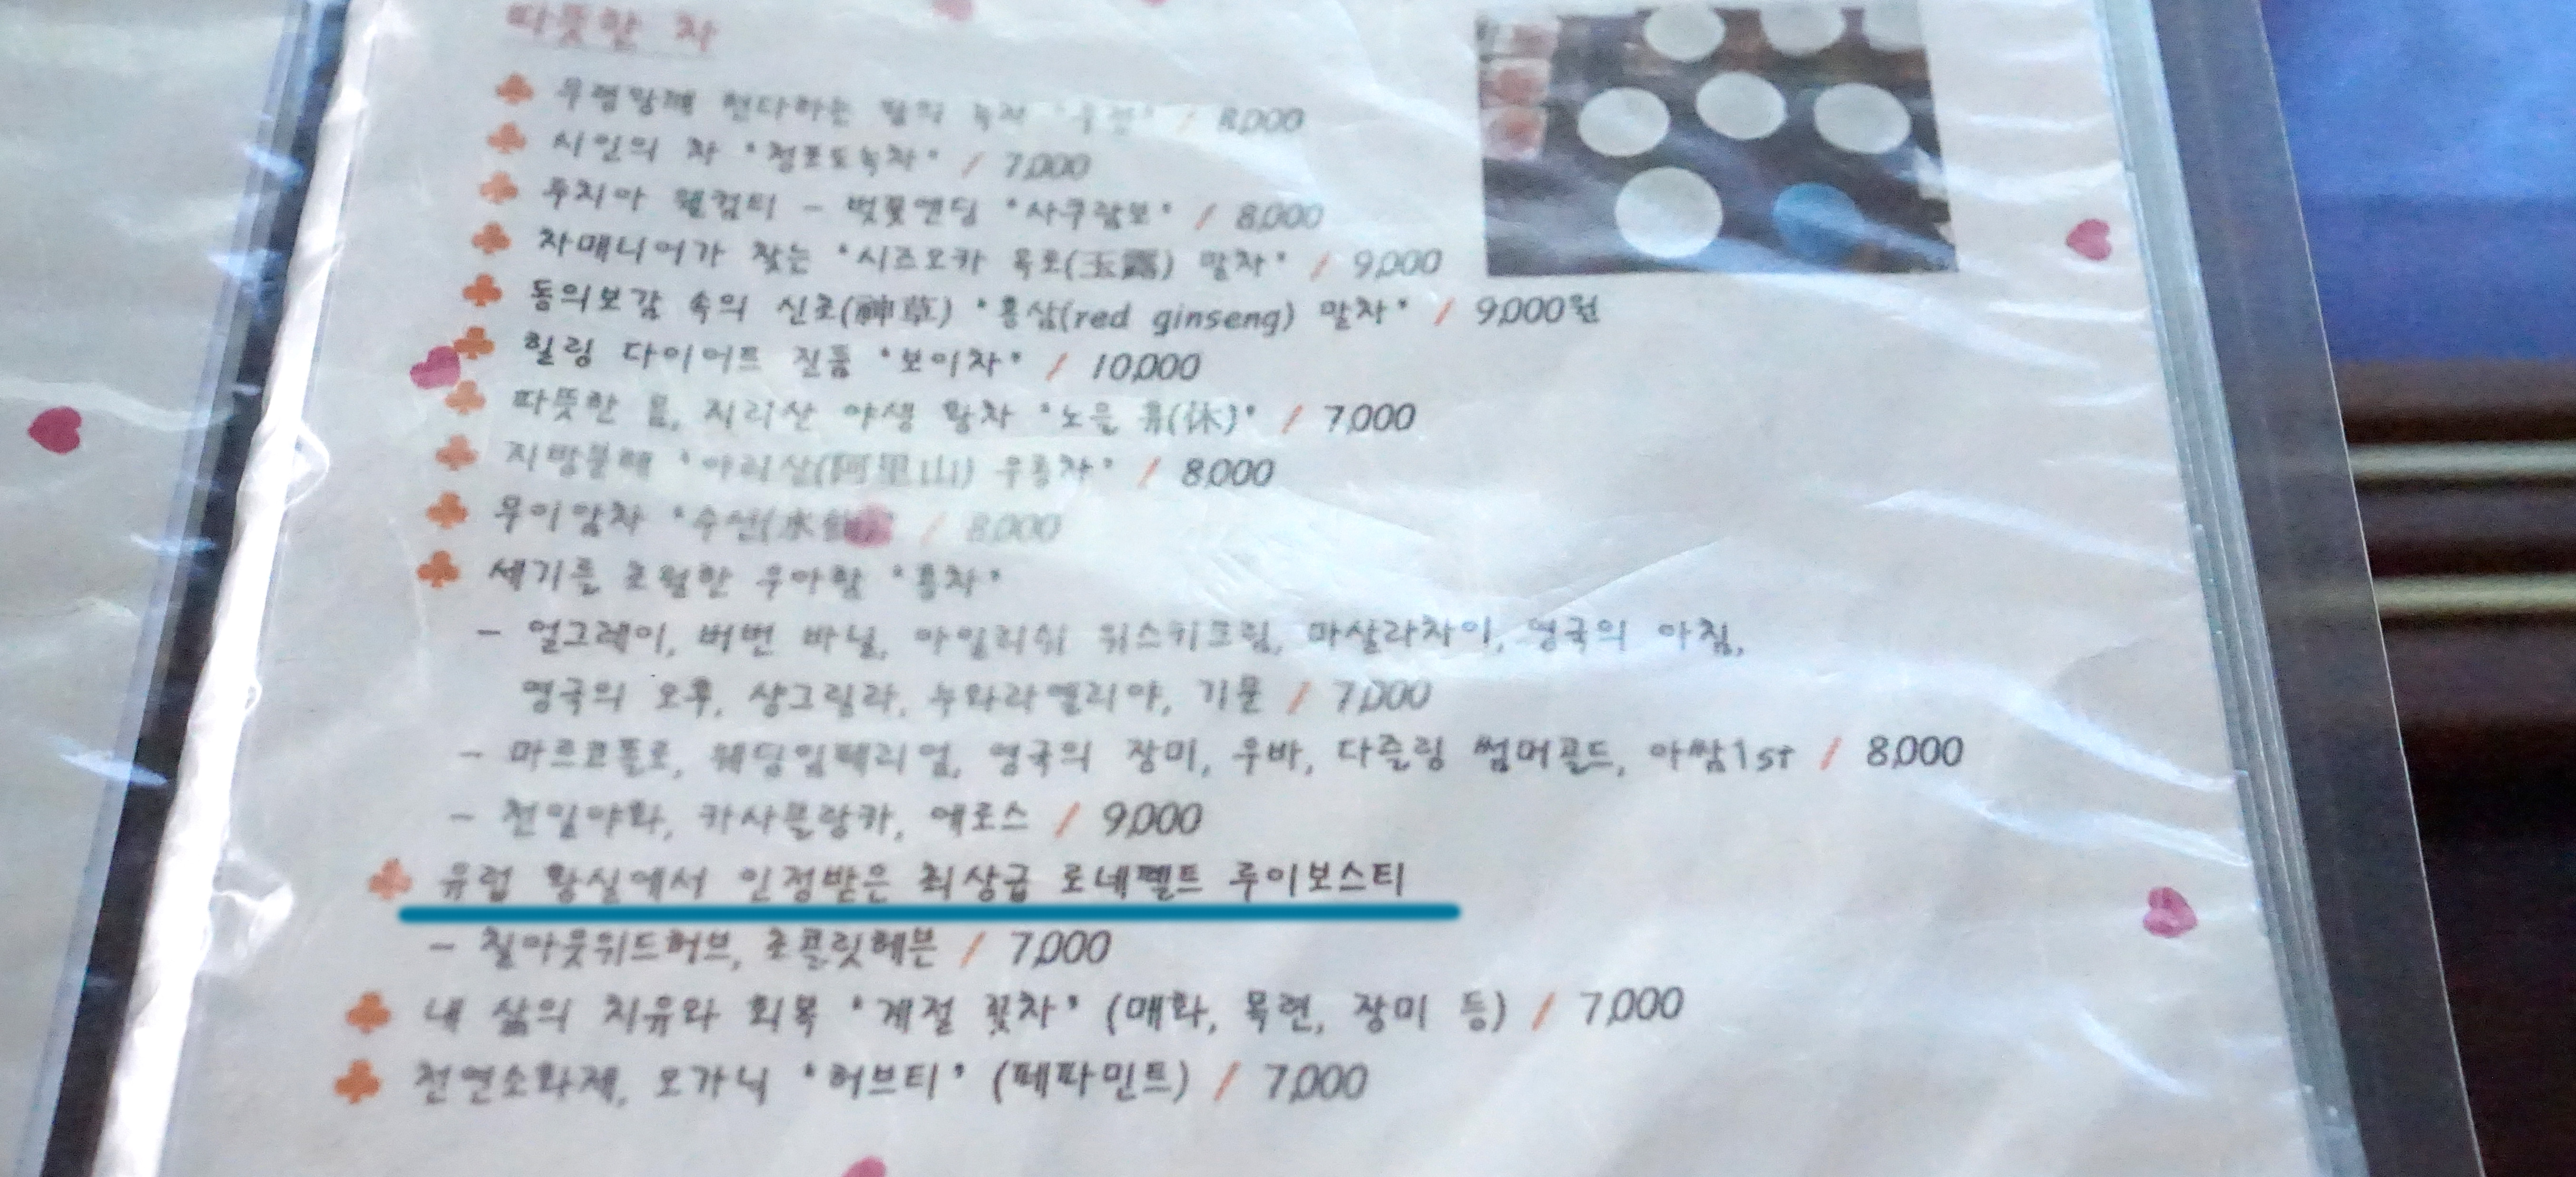 따뜻한 차
우렁각시 전다하는 말의 녹차 "우전" / 8,000
시인의 차 "청포도녹차" / 7,000
루치아 웰컴티 - 벚꽃엔딩 "사쿠람보" / 8,000
차매니어가 찾는 "시즈오카 옥로(玉露) 말차" / 9,000
동의보감 속의 신초(神草) "홍삼(red ginseng) 말차" / 9,000원
힐링 다이어트 진품 "보이차" / 10,000
따뜻한 몸, 지리산 야생 황차 "노을 휴(休)" / 7,000
"아리산(阿里山) 우롱차" / 8,000
무이암차 "수선(水仙)" / 8,000
세기를 초월한 우아함 "홍차"
- 얼그레이, 버번 바닐, 아일리쉬 위스키크림, 마살라차이, 영국의 아침,
영국의 오후, 샹그릴라, 누와라엘리야, 기문 / 7,000
- 마르코폴로, 웨딩임페리얼, 영국의 장미, 우바, 다즐링 썸머골드, 아쌈1st / 8,000
- 천일야화, 카사블랑카, 에로스 / 9,000
유럽 황실에서 인정받은 최상급 로네펠트 루이보스티
- 칠아웃위드허브, 초콜릿헤븐 / 7,000
내 삶의 치유와 회복 "계절 꽃차" (매화, 목련, 장미 등) / 7,000
천연소화제, 오가닉 "허브티" (페파민트) / 7,000